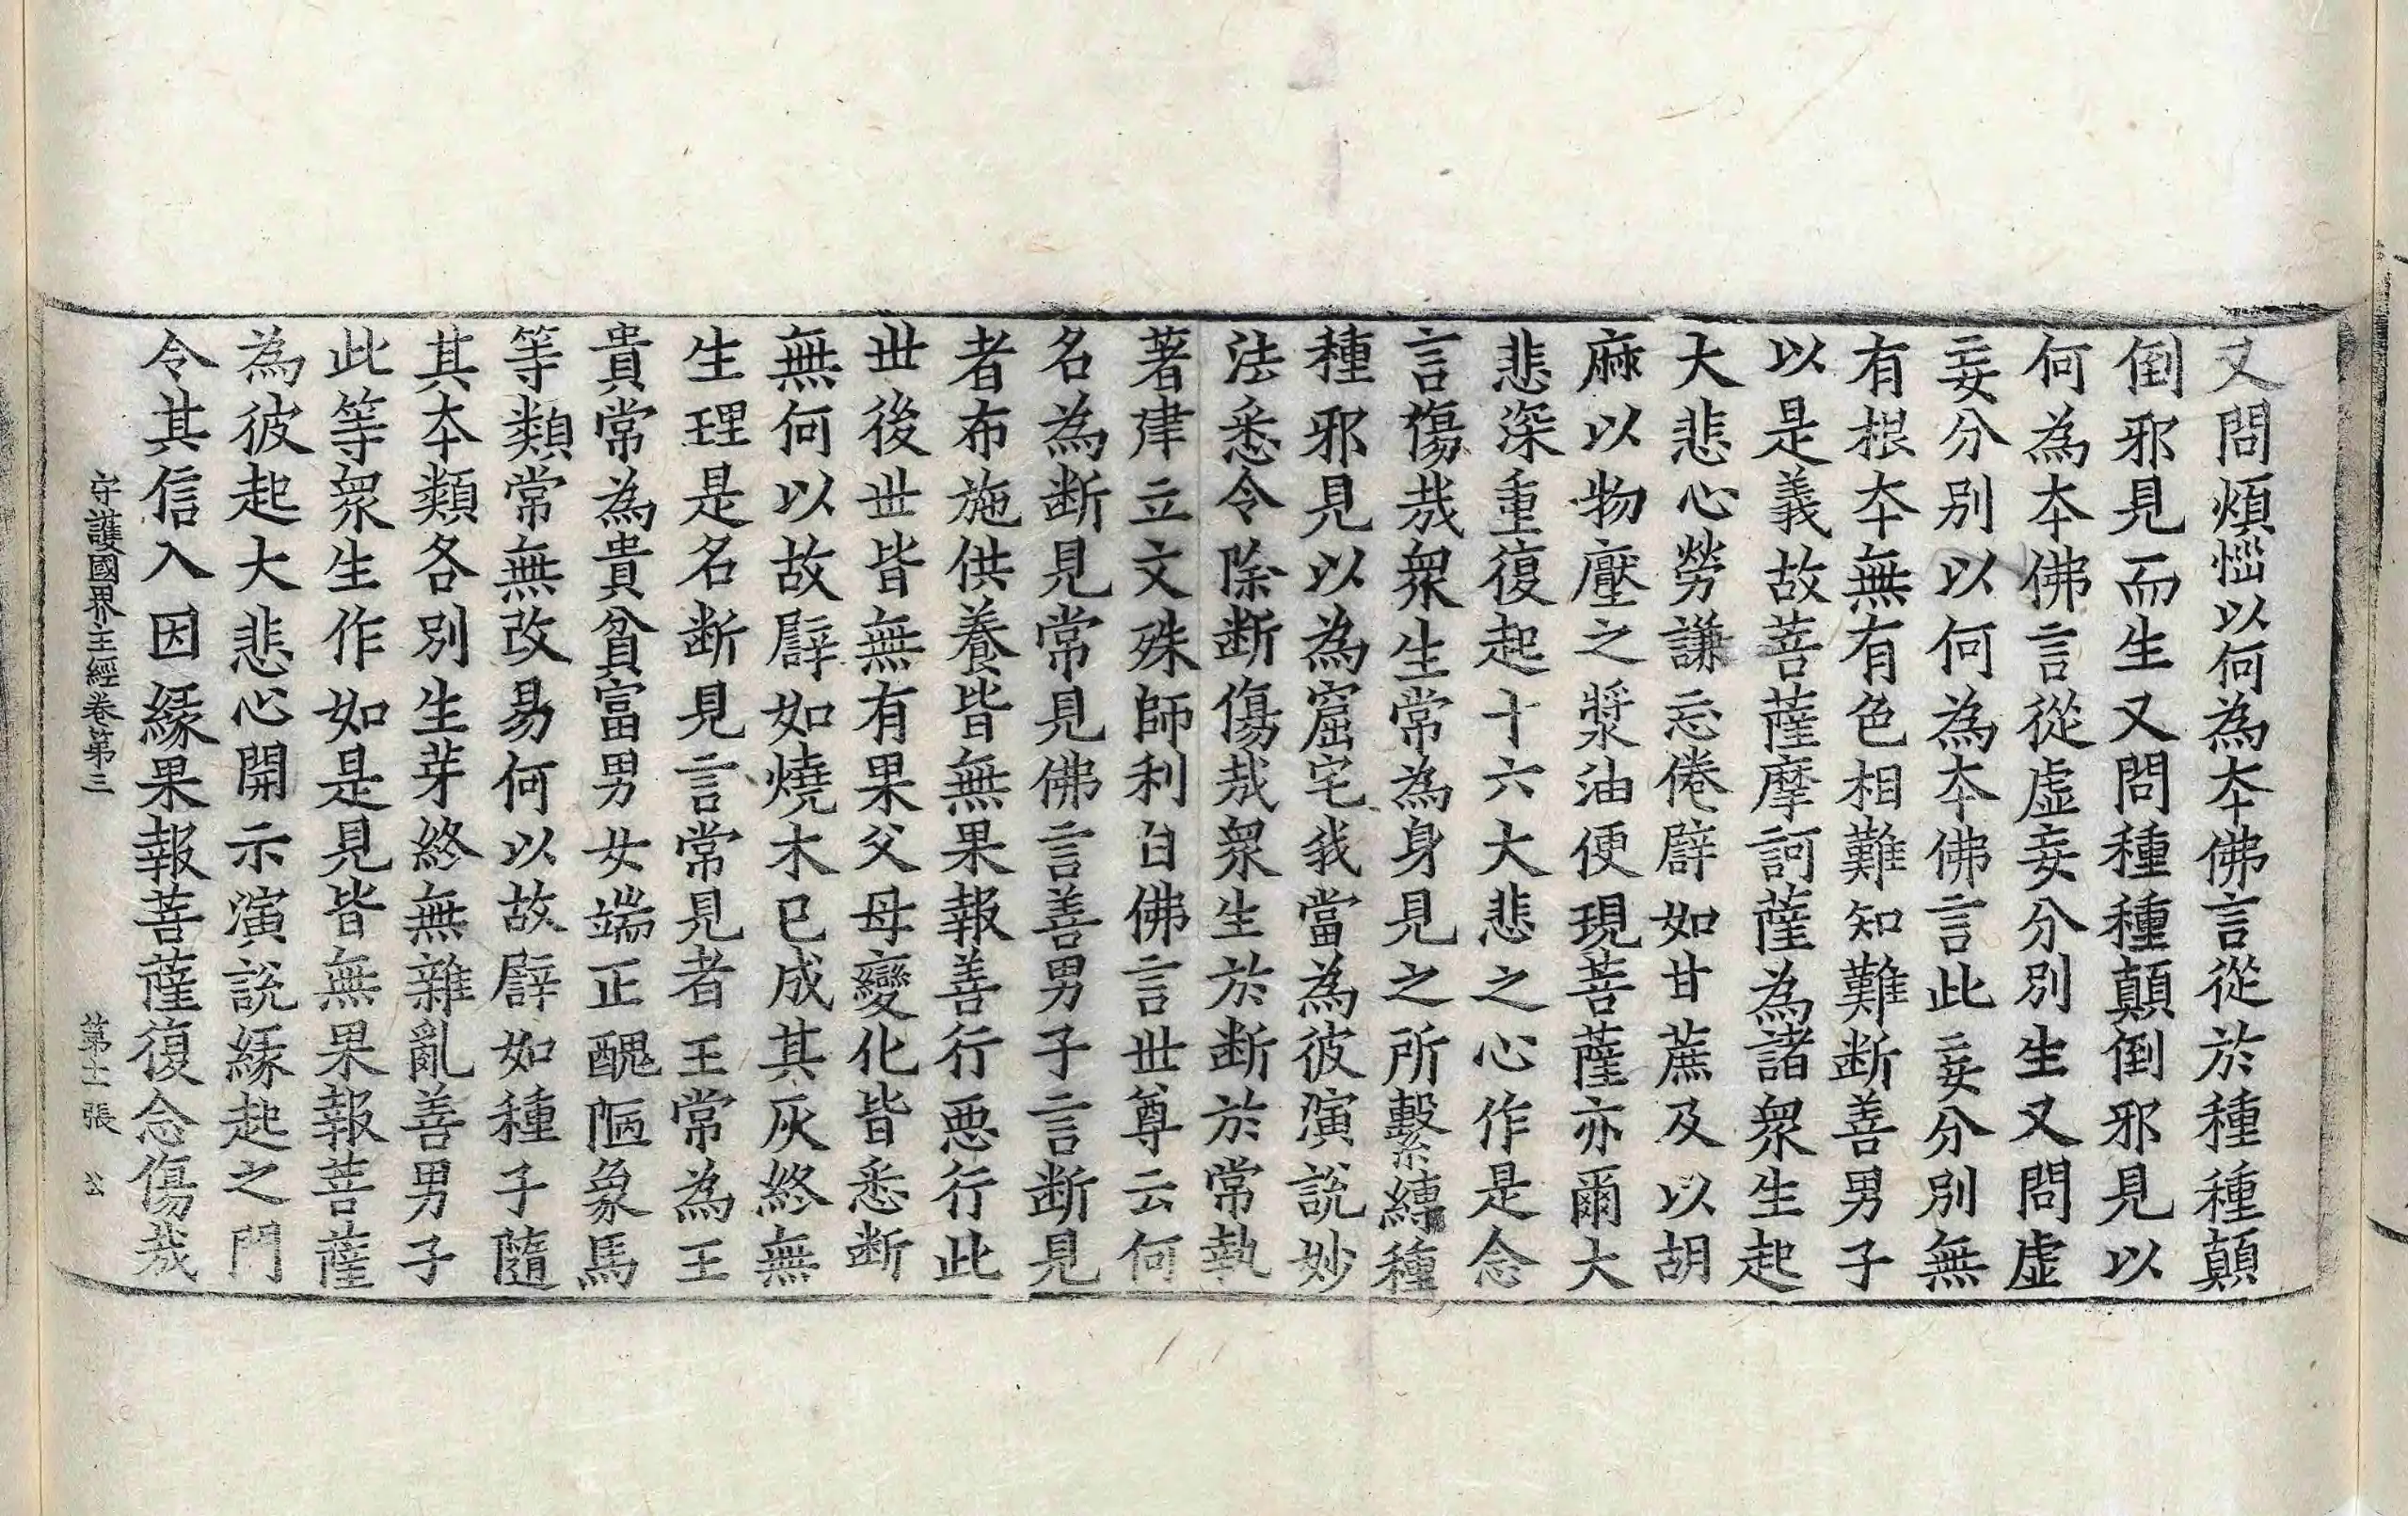 又問煩惱以何為本佛言從於種種顛
倒邪見而生又問種種顛倒邪見以
何為本佛言從虛妄分別生又問虛
妄分別以何為本佛言此妄分別無
有根本無有色相難知難断善男子
以是義故菩薩摩訶薩為諸衆生起
大悲心勞謙忘倦譬如甘蔗及以胡
麻以物壓之漿油便現菩薩亦爾大
悲深重復起十六大悲之心作是念
言傷哉衆生常為身見之所繫縛種
種邪見以為窟宅我當為彼演說妙
法悉令除断傷哉衆生於断於常執
著建立文殊師利白佛言世尊云何
名為断見常見佛言善男子言断見
者布施供養皆無果報善行惡行此
世後世皆無有果父母變化皆悉断
無何以故譬如燒木已成其灰終無
生理是名断見言常見者王常為王
貴常為貴貧富男女端正醜陋象馬
等類常無改易何以故譬如種子隨
其本類各別生芽終無雜亂善男子
此等衆生作如是見皆無果報菩薩
為彼起大悲心開示演說緣起之門
令其信入因緣果報菩薩復念傷哉
守護國界主經卷第三 第十二張 公